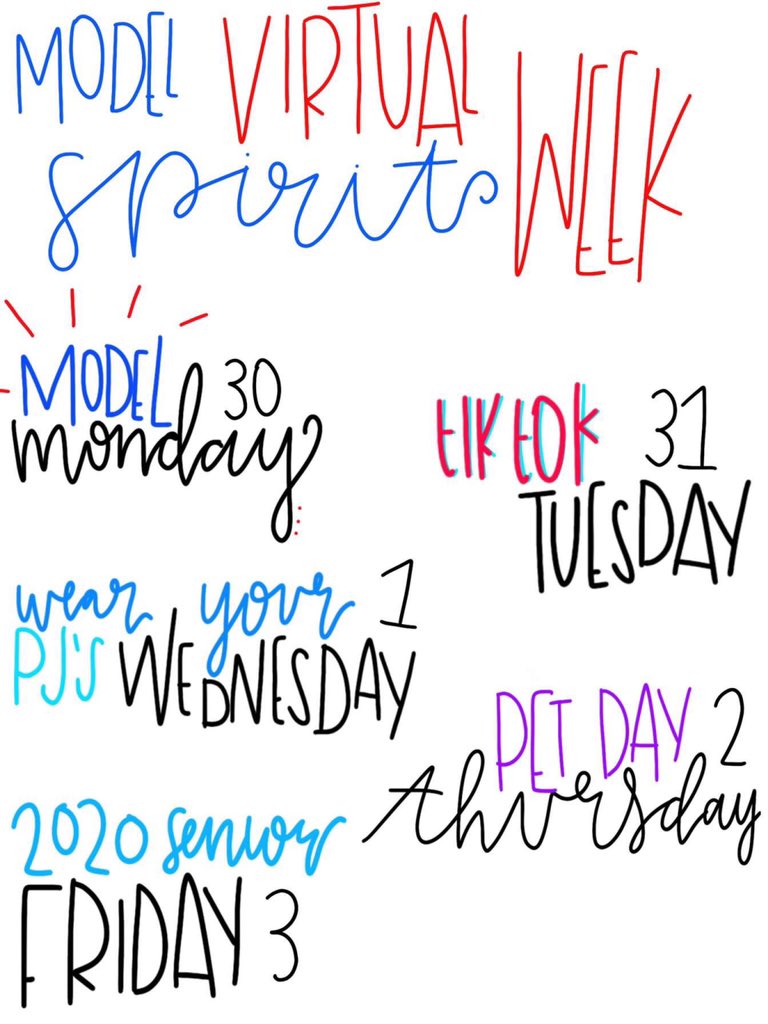 MODEL VIRTUAL
spirit WEEK
MODEL 30
monday
tik tok 31
TUESDAY
wear your 1
PJ'S WEDNESDAY
PET DAY 2
thursday
2020 senior
FRIDAY 3